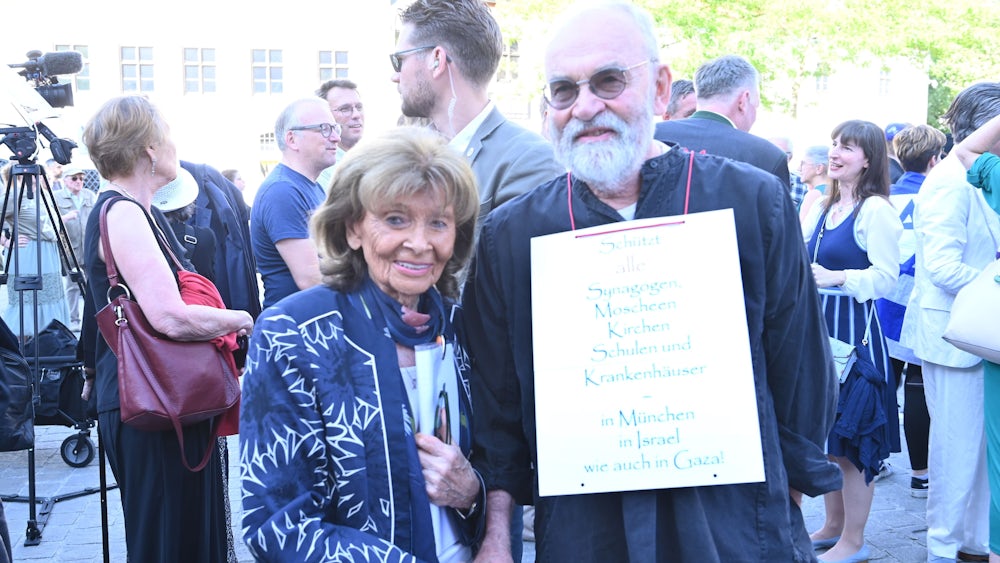 Schützt
alle
Synagogen,
Moscheen
Kirchen
Schulen und
Krankenhäuser
–
in München
in Israel
wie auch in Gaza!